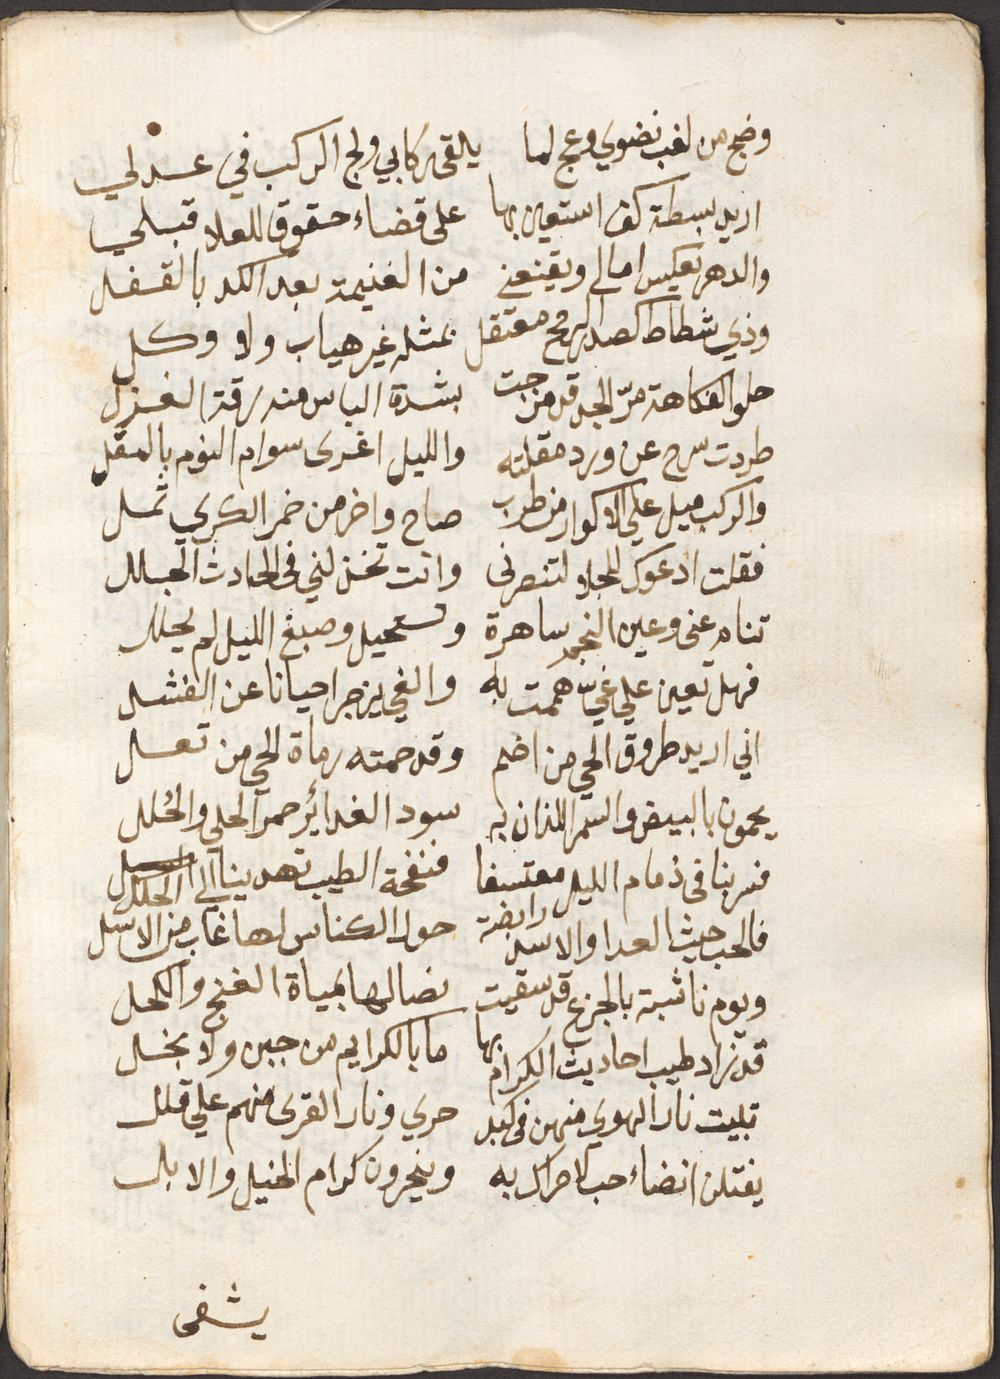 وضج من لغب نضوي وعج لما يلقى ركابي ولج الركب في عذلي
اريد بسطة كف استعين بها على قضاء حقوق للعلا قبلي
والدهر يعكس امالي ويقنعني من الغنيمة بعد الكد بالقفل
وذي شطاط كصدر الرمح معتقل بمثله غير هياب ولا وكل
حلو الفكاهة مرّ الجد قد مزجت بشدة الباس منه رقة الغزل
طردت سرح عن ورد مقلته والليل اغرى سوام النوم بالمقل
والركب ميل على الاكوار من طرب صاح واخر من خمر الكري ثمل
فقلت ادعوك للجلا لتنصرني وانت تخذلني في الحادث الجلل
تنام عني وعين النجم ساهرة وتستحيل وصبغ الليل لم يحلل
فهل تعين علي غيّ هممت به والغي يزجر احيانا عن الفشل
اني اريد طروق الحي من اضم وقد حمته رماة الحي من ثعل
يحمون بالبيض والسمر اللدان به سود الغدائر حمر الحلي والحُلل
فسر بنا في ذمام الليل معتسفا فنفحة الطيب تهدينا الي الحلل
فالحب حيث العدا والاسد رابضة حول الكناس لها غاب من الاسل
ويوم ناشبة بالجزع قد سقيت نصالها بمياة الغنج والكحل
قد زاد طيب احاديث الكرام بها ما بالكرايم من جبن ولا بخل
تبيت نار الهوي منهن في كبد حري ونار القرى منهم علي قلل
يقتلن انضاء حب لا حراك به وينحرون كرام الخيل والابل
يشفى